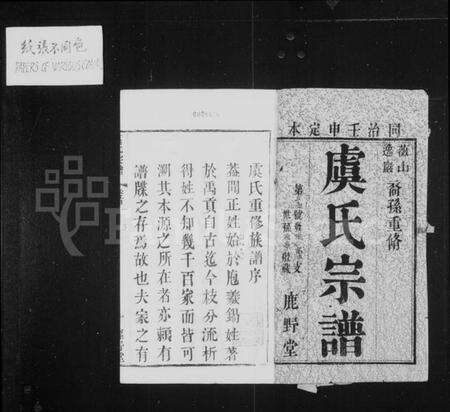 紙張不同色
PAPERS OF VARIOUS COLOR
同治壬申定本
敬山
逸巖
裔孫重脩
虞氏宗譜
鹿野堂
虞氏重修族譜序
葢聞正姓始於庖羲錫姓著
於禹貢自古迄今枝分流析
得姓不知幾千百家而皆可
溯其本源之所在者亦頼有
譜牒之存焉故也夫家之有